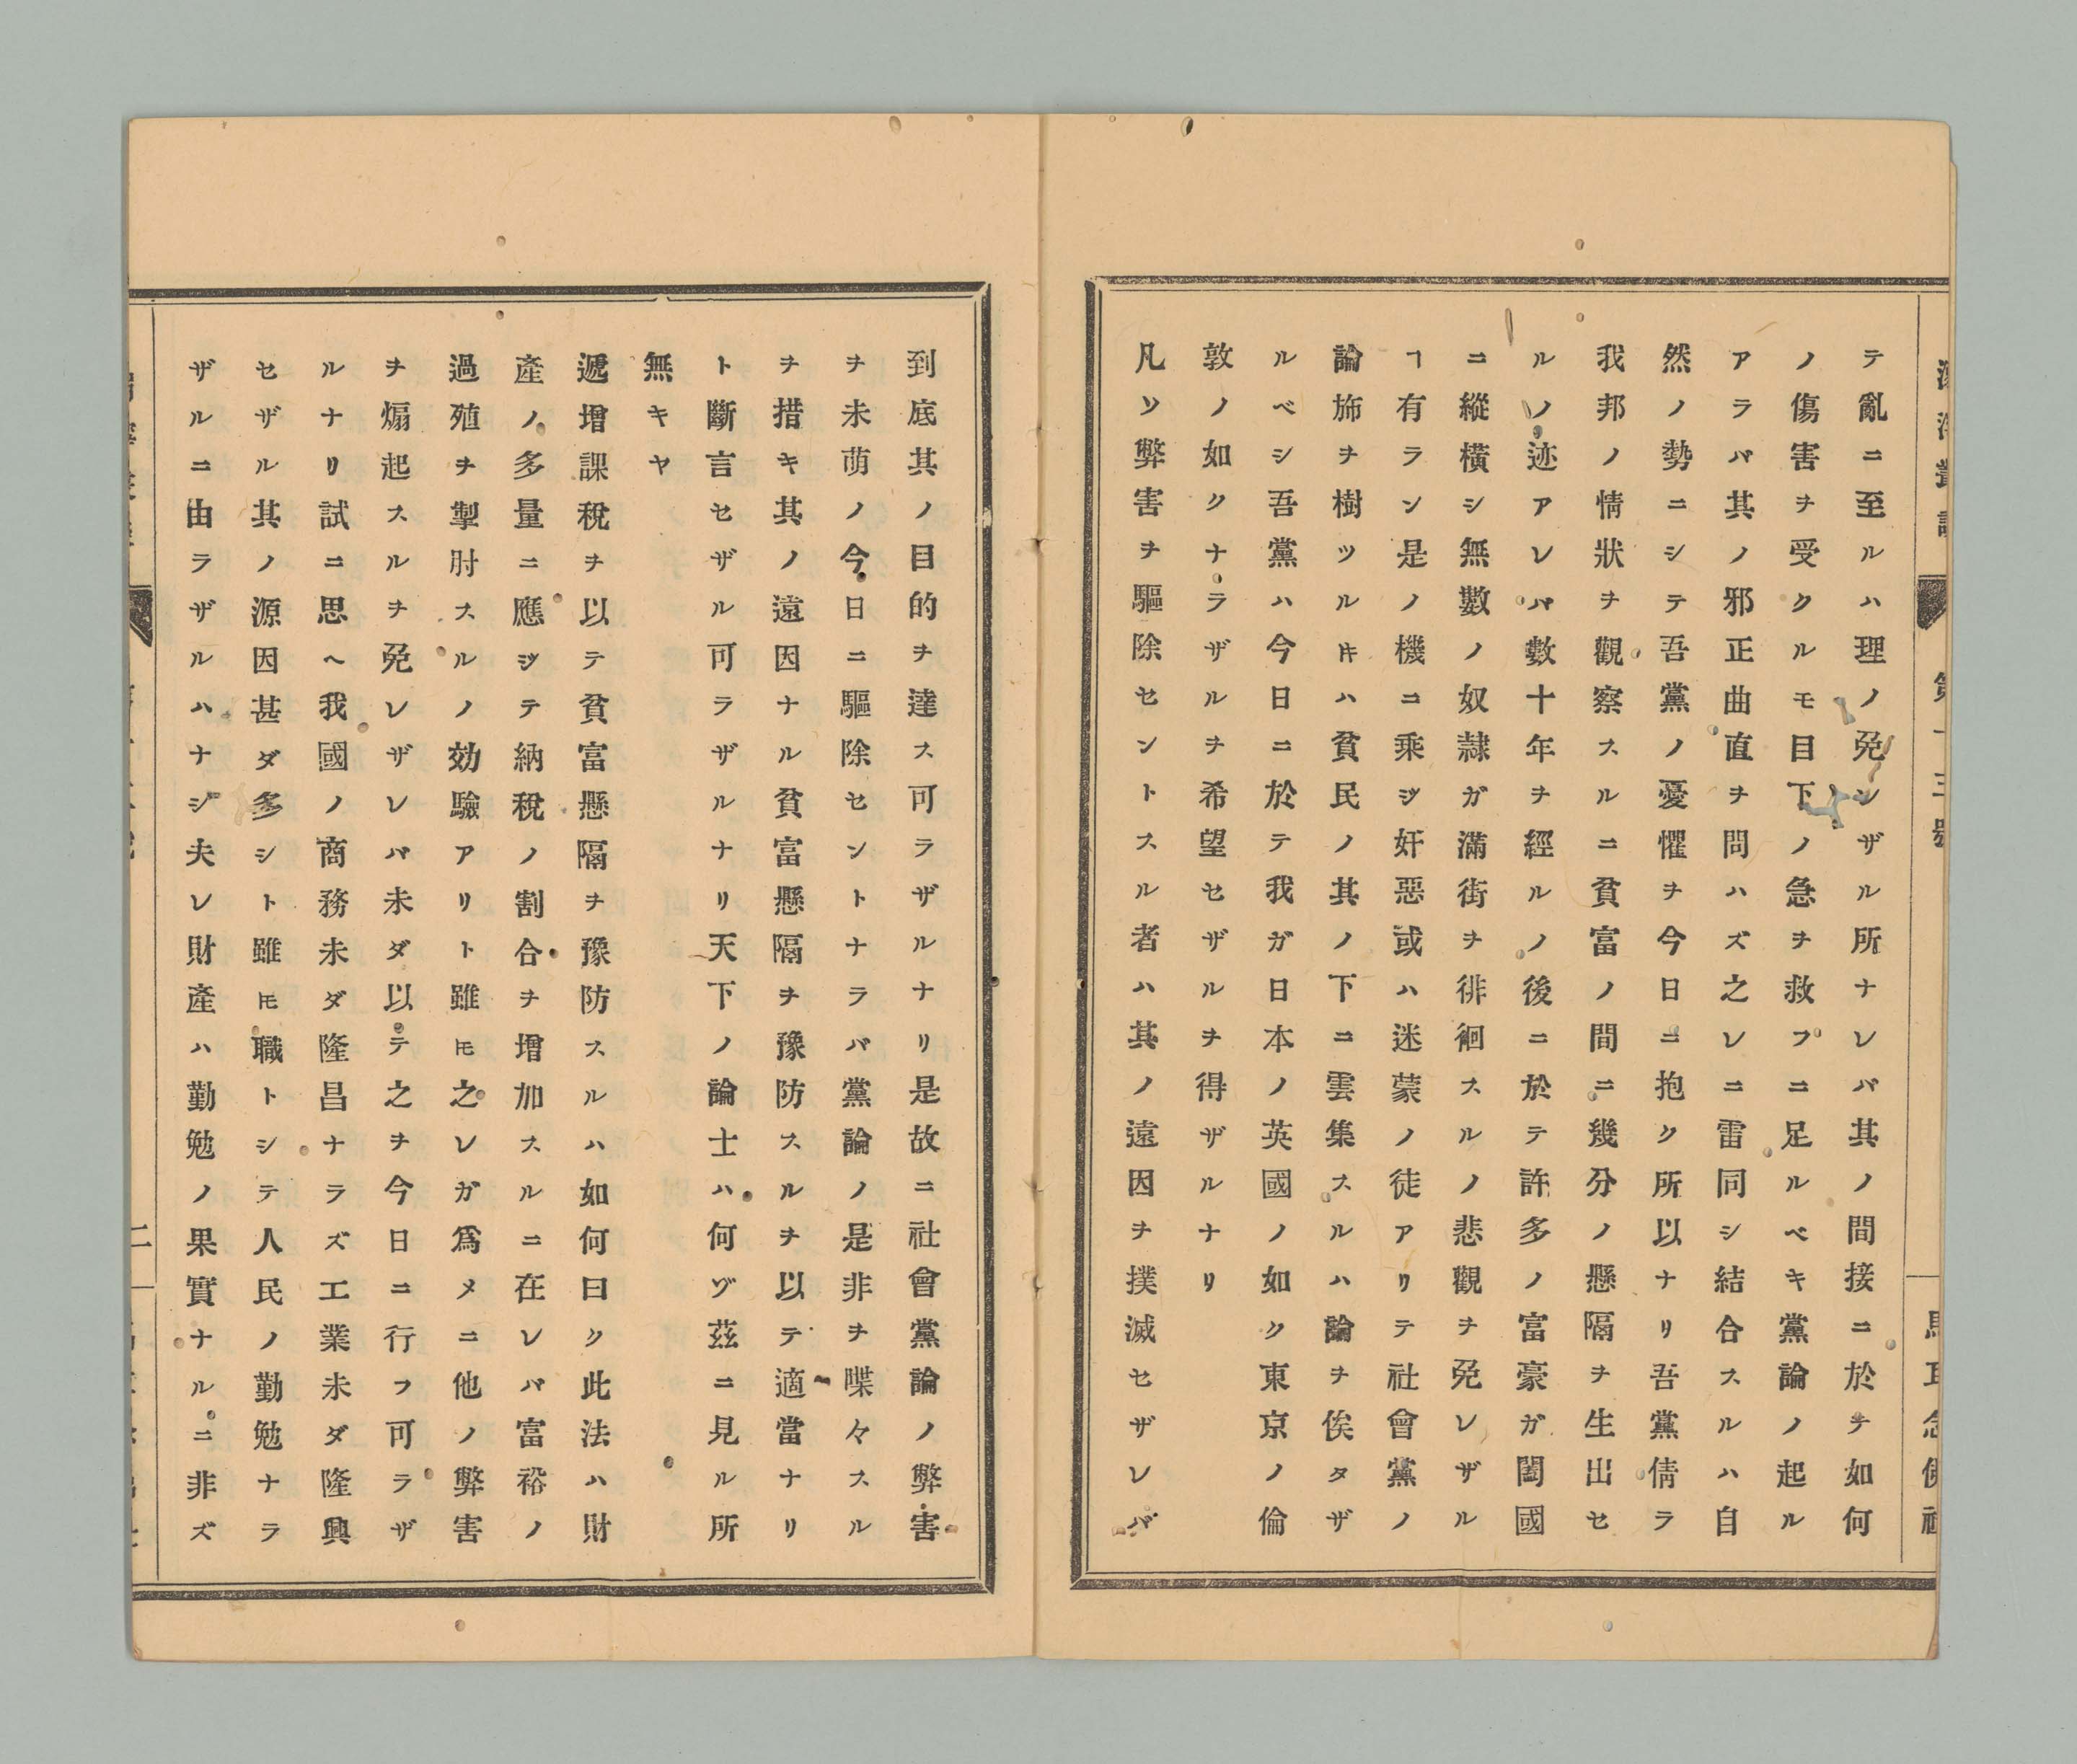 第十三號
テ亂ニ至ルハ理ノ免ンザル所ナレバ其ノ間接ニ於テ如何
ノ傷害ヲ受クルモ目下ノ急ヲ救フニ足ルベキ黨論ノ起ル
アラバ其ノ邪正曲直ヲ問ハズ之レニ雷同シ結合スルハ自
然ノ勢ニシテ吾黨ノ憂懼ヲ今日ニ抱ク所以ナリ吾黨倩ラ
我邦ノ情狀ヲ觀察スルニ貧富ノ間ニ幾分ノ懸隔ヲ生出セ
ルノ迹アレバ數十年ヲ經ルノ後ニ於テ許多ノ富豪ガ闔國
ニ縱橫シ無數ノ奴隷ガ滿街ヲ徘徊スルノ悲觀ヲ免レザル
ヿ有ラン是ノ機ニ乘ジ奸惡或ハ迷蒙ノ徒アリテ社會黨ノ
論旆ヲ樹ツルキハ貧民ノ其ノ下ニ雲集スルハ論ヲ俟タザ
ルベシ吾黨ハ今日ニ於テ我ガ日本ノ英國ノ如ク東京ノ倫
敦ノ如クナラザルヲ希望セザルヲ得ザルナリ
凡ソ弊害ヲ驅除セントスル者ハ其ノ遠因ヲ撲滅セザレバ
到底其ノ目的ヲ達ス可ラザルナリ是故ニ社會黨論ノ弊害
ヲ未萠ノ今日ニ驅除セントナラバ黨論ノ是非ヲ喋々スル
ヲ措キ其ノ遠因ナル貧富懸隔ヲ豫防スルヲ以テ適當ナリ
ト斷言セザル可ラザルナリ天下ノ論士ハ何ヅ茲ニ見ル所
無キヤ
遞增課稅ヲ以テ貧富懸隔ヲ豫防スルハ如何曰ク此法ハ財
產ノ多量ニ應ジテ納稅ノ割合ヲ增加スルニ在レバ富裕ノ
過殖ヲ掣肘スルノ効驗アリト雖𪜈之レガ爲メニ他ノ弊害
ヲ煽起スルヲ免レザレバ未ダ以テ之ヲ今日ニ行フ可ラザ
ルナリ試ニ思ヘ我國ノ商務未ダ隆昌ナラズ工業未ダ隆興
セザル其ノ源因甚ダ多シト雖𪜈職トシテ人民ノ勤勉ナラ
ザルニ由ラザルハナシ夫レ財產ハ勤勉ノ果實ナルニ非ズ
二